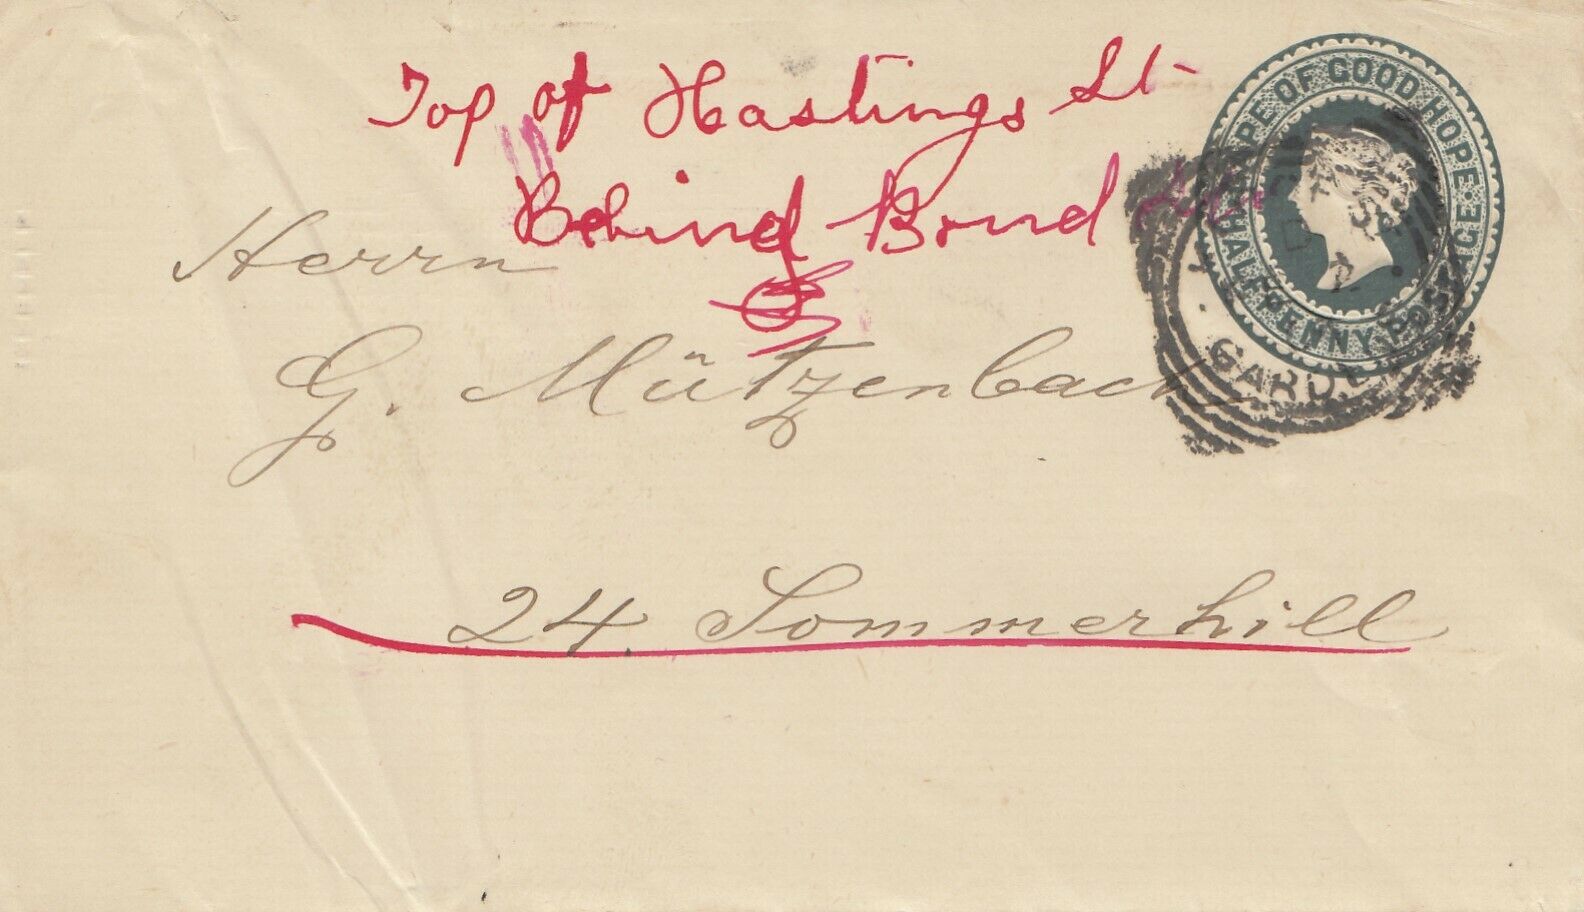 Top of Hastings St
Behind Bond
Herrn
G. Mützenbach
24. Sommerhill
CAPE OF GOOD HOPE
HALFPENNY POSTAGE
GARD